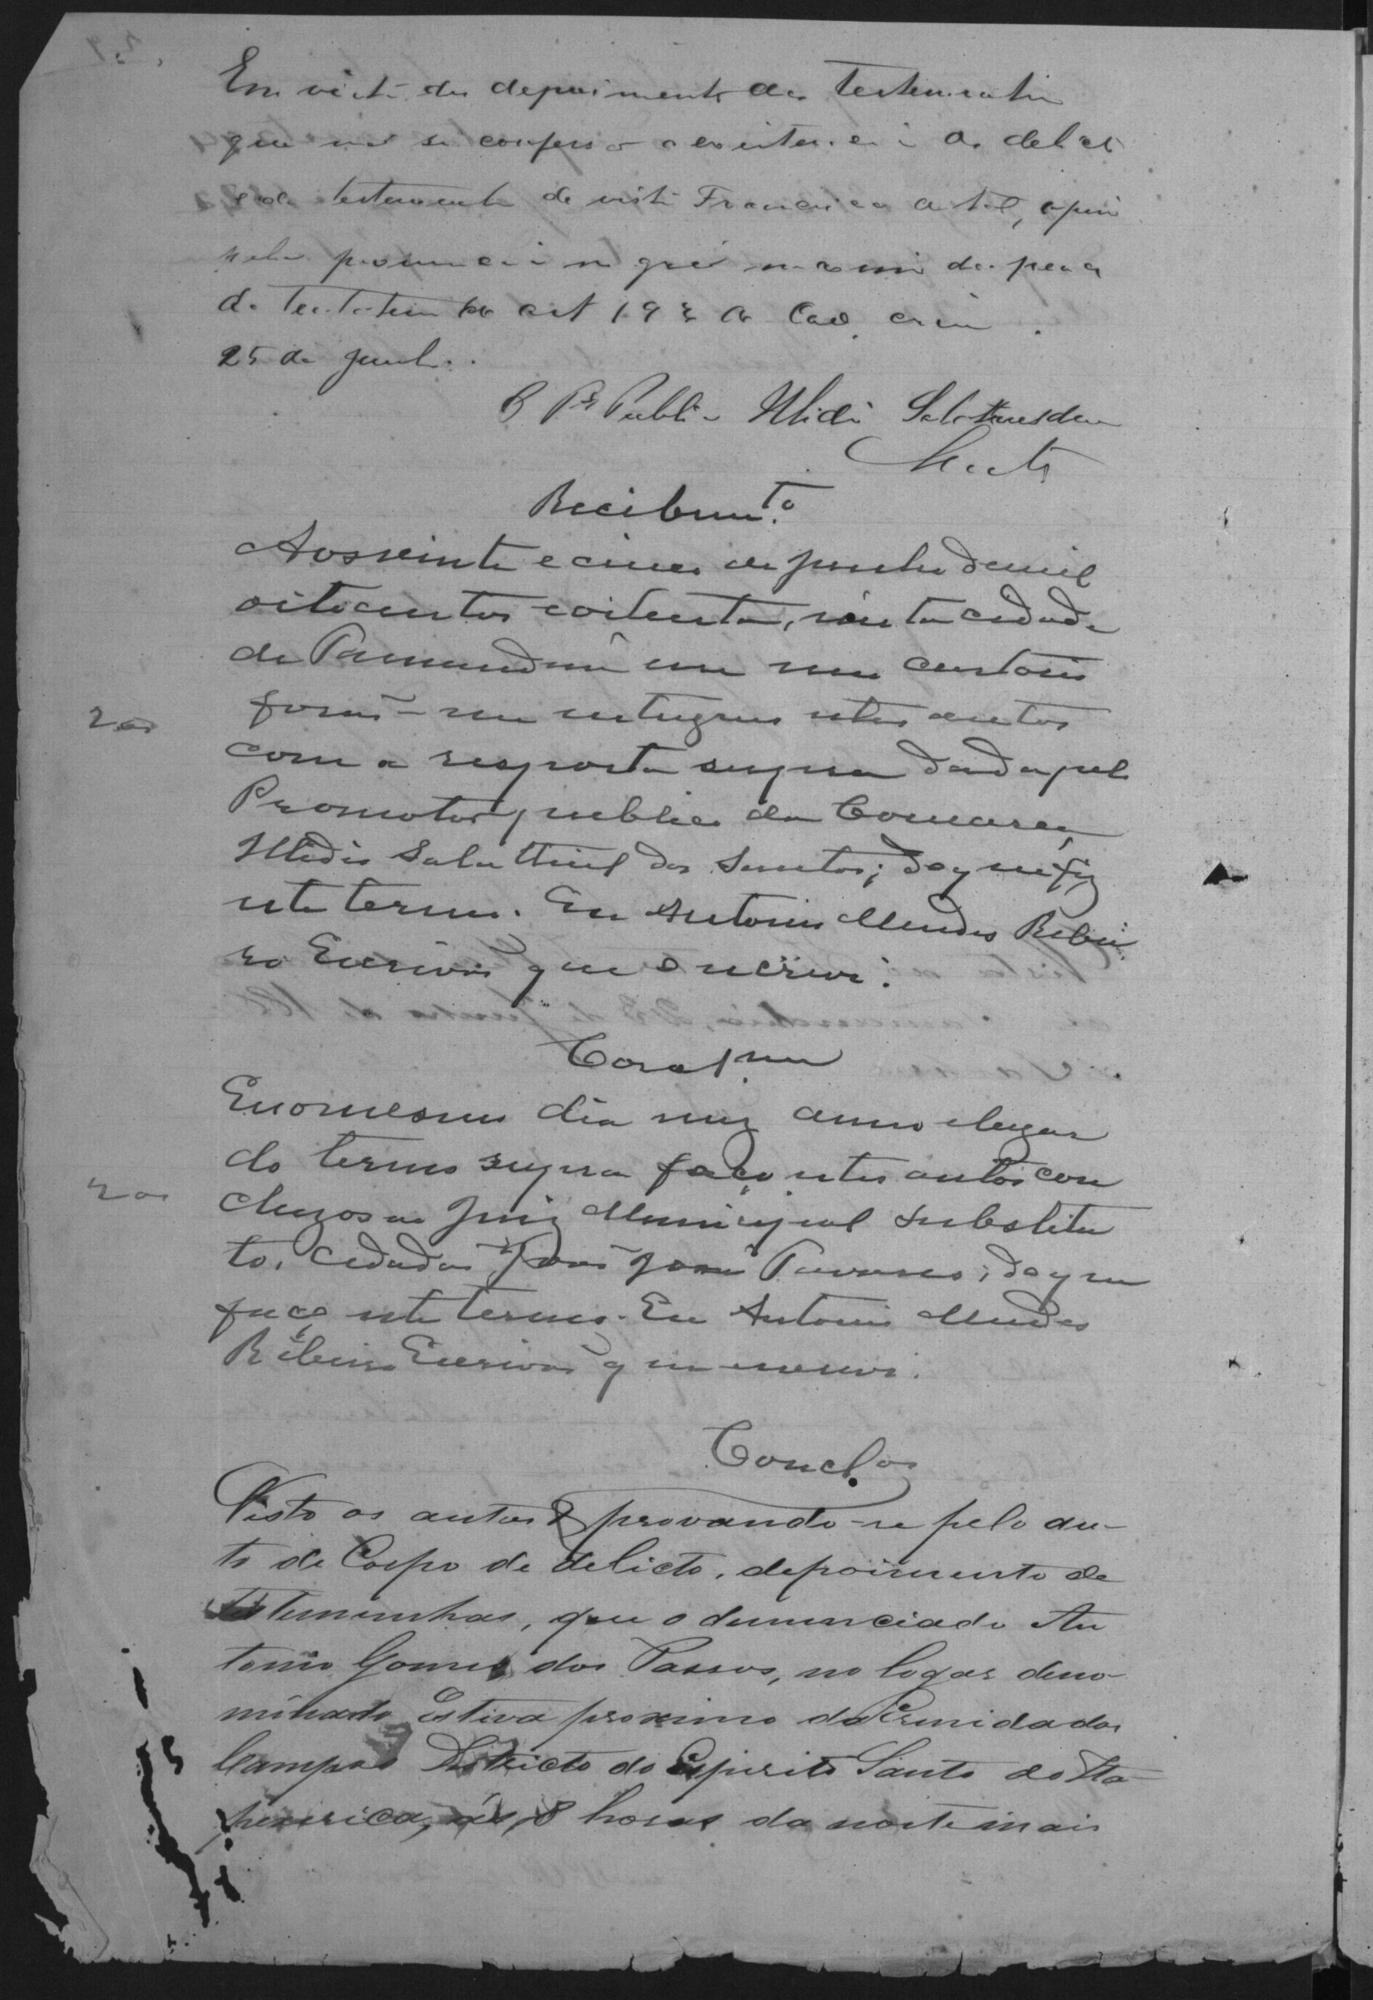 Em vist do depoimento das testemunhas
que se
testemunha de vista Francisco de tal,
pela pronuncia no grao maximo das penas
da tentativa do art 193 do Cod. crim.
25 de Junho.
O Pr Public Illidio Salathiel dos
Santos
Recibim.to
Aos vinte e cinco de Junho de mil
oitocentos e oitenta, nesta cidade
de em meu cartorio
forão-me entregues estes autos
com a resposta supra dada pelo
Promotor publico da Comarca,
Illidio Salathiel dos Santos; do que fiz
este termo. Eu Antonio Mendes Ribei
ro Escrivão que o escrevi.
Conclusam
E no mesmo dia mez anno e lugar
do termo supra faço estes autos con
cluzos ao Juiz Municipal substitu
to, cidadão João José Tavares; do que
faço este termo. Eu Antonio Mendes
Ribeiro Escrivão que escrevi.
Concl.os
Visto os autos & provando-se pelo au-
to de Corpo de delicto, depoimento de
testemunhas, que o denunciado An
tonio Gomes dos Passos, no logar deno-
minado Estiva proximo da Ermida dos
Campos Districto do Espirito Santo do Ita-
peserica, ás 8 horas da noite mais